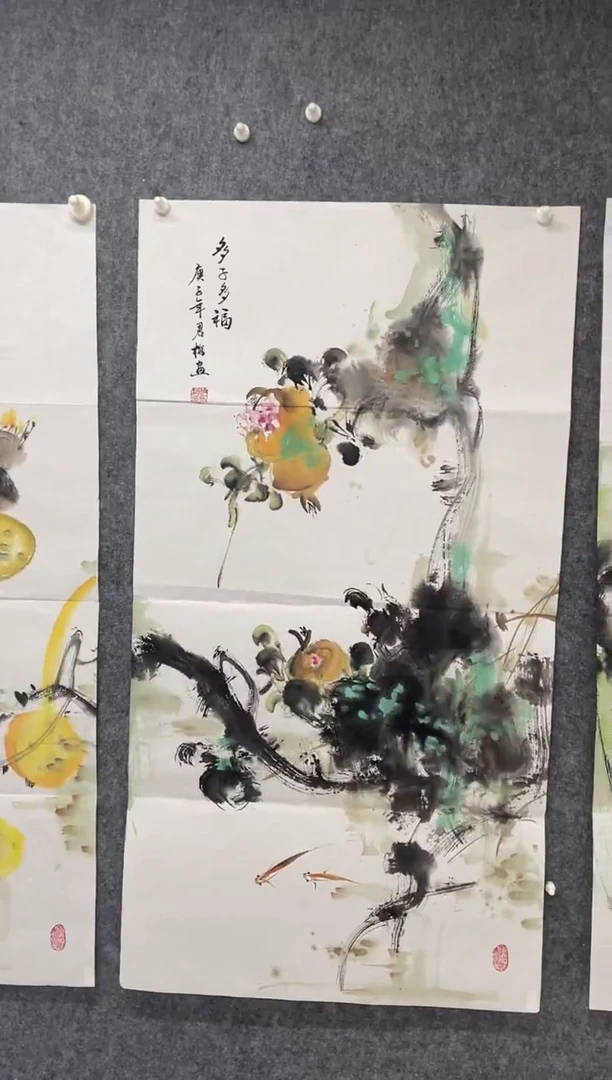 多子多福
庚子年君榕画